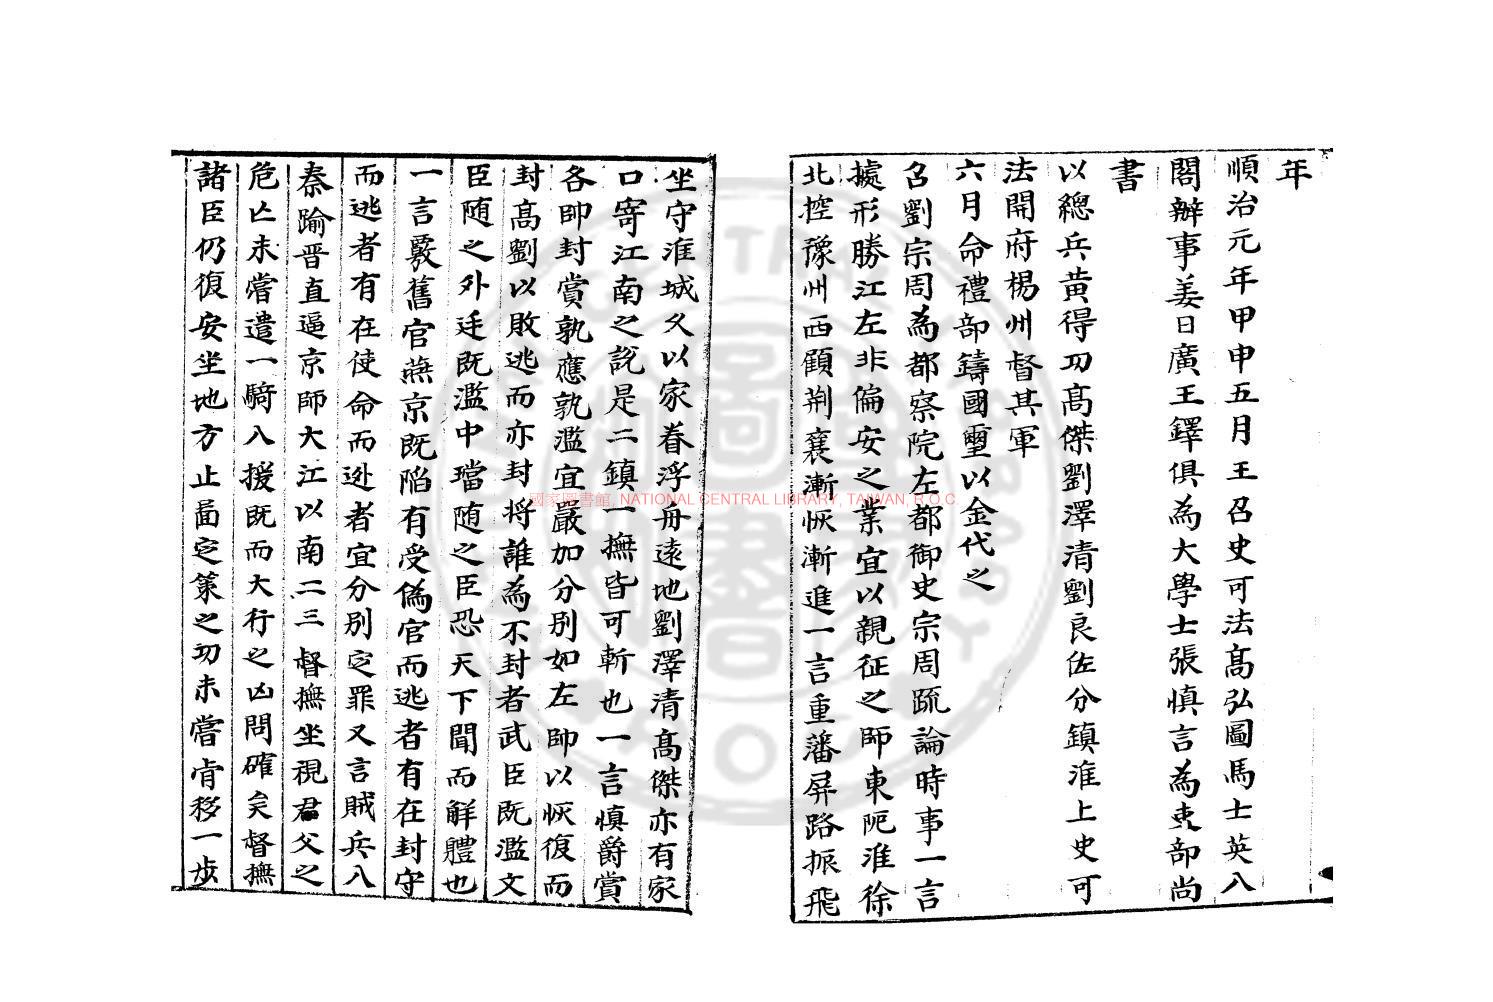 年
順治元年甲申五月王召史可法髙弘圖馬士英入
閣辦事姜曰廣王鐸俱為大學士張慎言為吏部尚
書
以總兵黄得功髙傑劉澤清劉良佐分鎮淮上史可
法開府楊州督其軍
六月命禮部鑄國璽以金代之
召劉宗周為都察院左都御史宗周疏論時事一言
據形勝江左非偏安之業宜以親征之師東阨淮徐
北控豫州西顧荆襄漸恢漸進一言重藩屏路振飛
坐守淮城久以家眷浮舟遠地劉澤清髙傑亦有家
口寄江南之説是二鎮一撫皆可斬也一言慎爵賞
各帥封賞孰應孰濫宜嚴加分别如左帥以恢復而
封髙劉以敗逃而亦封將誰為不封者武臣既濫文
臣随之外廷既濫中璫随之臣恐天下聞而解體也
一言覈舊官燕京既陷有受偽官而逃者有在封守
而逃者有在使命而逃者宜分别定罪又言賊兵入
秦踰晋直逼京師大江以南二三督撫坐視君父之
危亡未嘗遣一騎入援既而大行之凶問確矣督撫
諸臣仍復安坐地方止啚定策之功未嘗肯移一步
國家圖書館, NATIONAL CENTRAL LIBRARY, TAIWAN, R.O.C